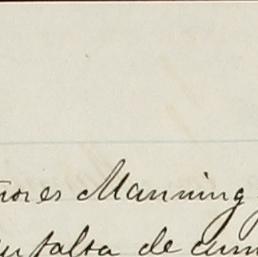 ñores Manning y
su falta de cum